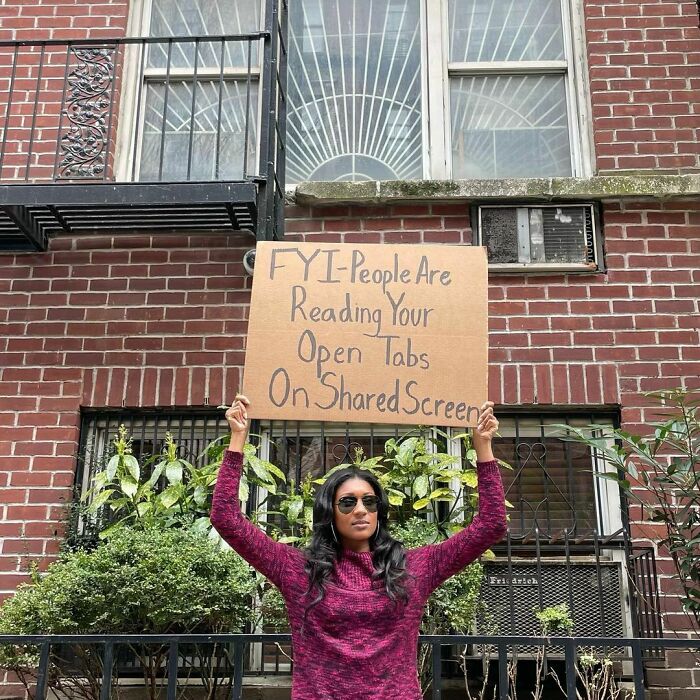 FYI-People Are
Reading Your
Open Tabs
On Shared Screen
Friedrich